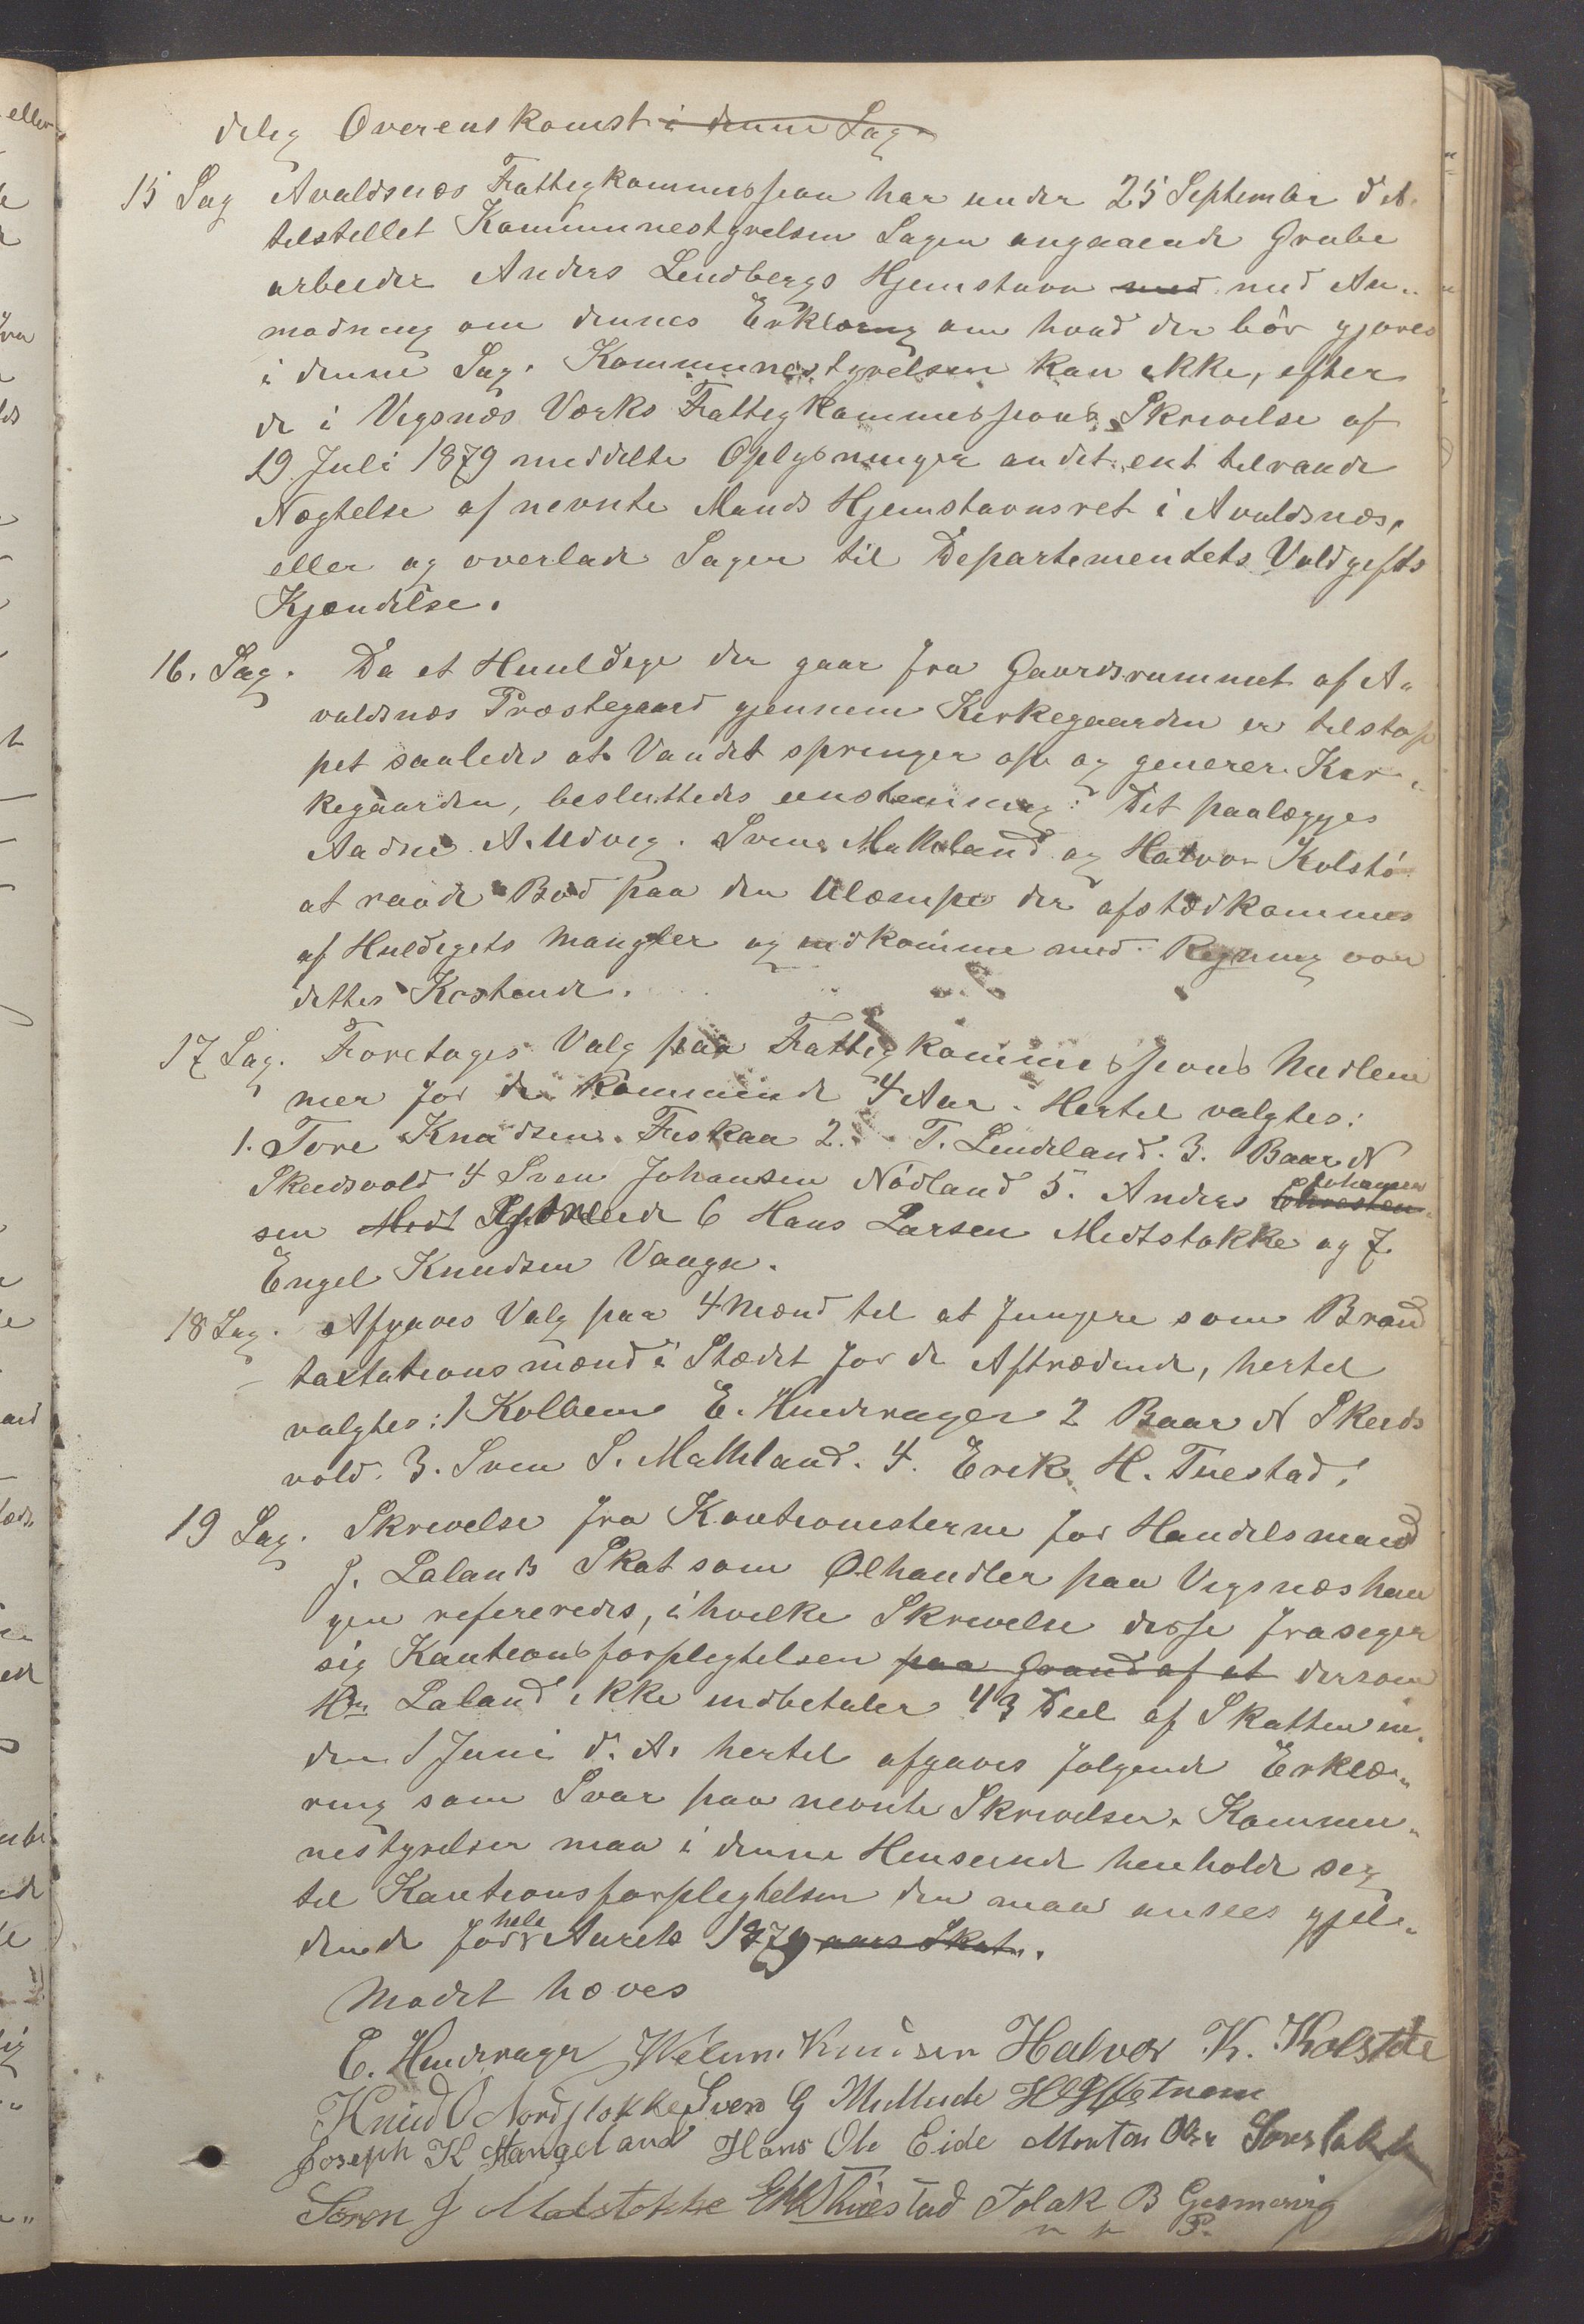 delig Overenskomst i denne Sag
15 Sag Avaldsnæs Fattigkommission har under 25 September d. A.
tilstillet Kommunestyrelsen Sagen angaaende Grube
arbeider Anders Lindbergs Hjemstavn med med An-
modning om dennes Erklæring om hvad der bör gjøres
i denne Sag. Kommunestyrelsen kan ikke, efter
de i Vigsnæs Værks Fattigkommissions Skrivelse af
19 Juli 1879 meddelte Oplysninger andet end tilraade
Nægtelse af nevnte Mands Hjemstavnsret i Avaldsnæs,
eller og overlade Sagen til Departementets Voldgifts
Kjændelse.
16. Sag. Da et Huuldige der gaar fra Gaardsrummet af A-
valdsnæs Præstegaard gjennem Kirkegaarden er tilstop
pet saaledes at Vandet springer op og generer Kir-
kegaarden, besluttedes enstemmig: Det paalægges
Aadne A. Udvig. Svend Matteland og Halvor Kolstö
at raade Bod paa den Ulæmpe der afstedkommes
af Huldigets Mangler og indkomme med Regning over
dettes Kostende.
17 Sag. Foretages Valg paa Fattigkommissions Medlem
mer for de kommende 4 Aar. Hertil valgtes:
1. Tore Knudsen Fiskaa 2. T. Lindeland. 3. Baar N
Skeidsvold 4 Sven Johansen Nödland 5. Anders Christen Johannes
sen Medt Østreim 6 Hans Larsen Medtstokke og 7.
Engel Knudsen Vaage.
18 Sag. Afgaves Valg paa 4 Mænd til at fungere som Brand
taxtationsmænd i Stædet for de Aftrædende, hertil
valgtes: 1 Kolbein E. Hinderager 2 Baar N Skeids
vold. 3. Sven S. Matteland. 4. Erik H. Tuestad.
19 Sag. Skrivelse fra Kautionisterne for Handelsmand
J. Lalands Skat som Ølhandler paa Vigsnæshau
gen refereredes, i hvilke Skrivelse disse frasiger
sig Kautionsforpligtelsen paa Grund af at dersom
Hr. Laland ikke indbetaler 1/3 Deel af Skatten in-
den 1 Juni d. A. hertil afgaves følgende Erklæ-
ring som Svar paa nevnte Skrivelse. Kommu-
nestyrelsen maa i denne Henseende henholde sig
til Kautionsforpligtelsen der maa ansees gjel-
dende for hele Aaret 1879 aars Skat.
Mødet hæves
E. Hinderager Wilum Knudsen Halvor K. Kolstöe
Knud O Nordstokke Sven G Mullude
Joseph K Stangeland Hans Ole Eide Morten Olsen Sørstokke
Søren J Medstokke Erik H Thuestad Tolak B Gismervig
m p P.